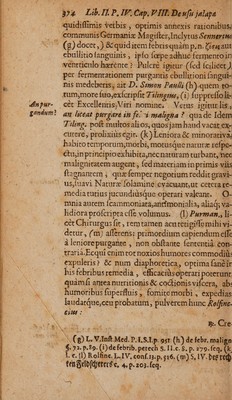 374 Lib. II. P. IV. Cap. VIII. De usu jalapæ
quidissimis verbis, optimis annexis rationibus,
communis Germaniæ Magister, Inclytus Sennertus
(g) docet, & quid item febris quàm p.n.
ebullitio sanguinis, ipso sæpe adhuc fermento in
ventriculo hærente? Pulcre igitur (sed scilicet)
per fermentationem purgantis ebullitioni sanguinis
medeberis, ait D. Simon Paulli (h) quem totum,
more suo, exscripsit Tilingius, (i) suppresso
licet Excellentis, Viri nomine. Vetus igitur lis,
An purgandum?
an liceat purgare in fe. maligna? qua de Idem
Tiling. post multos alios, quos jam haud vacat excutere,
prolixius egit. (k) Leniora & minorativa,
habito temporum, morbi, motusque naturæ respectu,
in principio ea habita, nec naturam turbate, nec
malignitatem augent, sed materiam in primis viis
stagnantem, quæ semper negotium reddit gravius,
juvant. Naturæ solamini evacuant, ut cetera remedia
tutius jucundiusque operari valeant. Omnia
autem scammoniata, antimonialia, aliaq;
validiora proscripta esse volumus. (l) Purman.,
licet Chirurgus sit, rem tamen acu tetigisse mihi videtur,
(m) asserens: primordium expendium esse
à leniore purgante, non obstante sententiâ contrariâ.
Ecqui enim tot motus humores commodius
expuleris? & num diaphoretica, optima sanè in
his febribus remedia, efficaciùs operari poterunt,
quàm si antea nutritionis & coctionis viscera, ab
humoribus superfluis, fomite morbi, expedias
laudarque, ceu probatum, pulverem hunc Rolfincium:
℞. Cre-
(g) L. V. Inst Med. P. I. S. I. p. 951 (h) de febr. malign.
§. 72. p. 89. (i) de febrib. petech. S. II. c. 8. p. 279. seq. (k)
l. c. (l) Rolfinc. L. IV. conf. 15. p. 516. (m) S. IV. des rechten
Feldscherers c. 4. p. 203. seq.